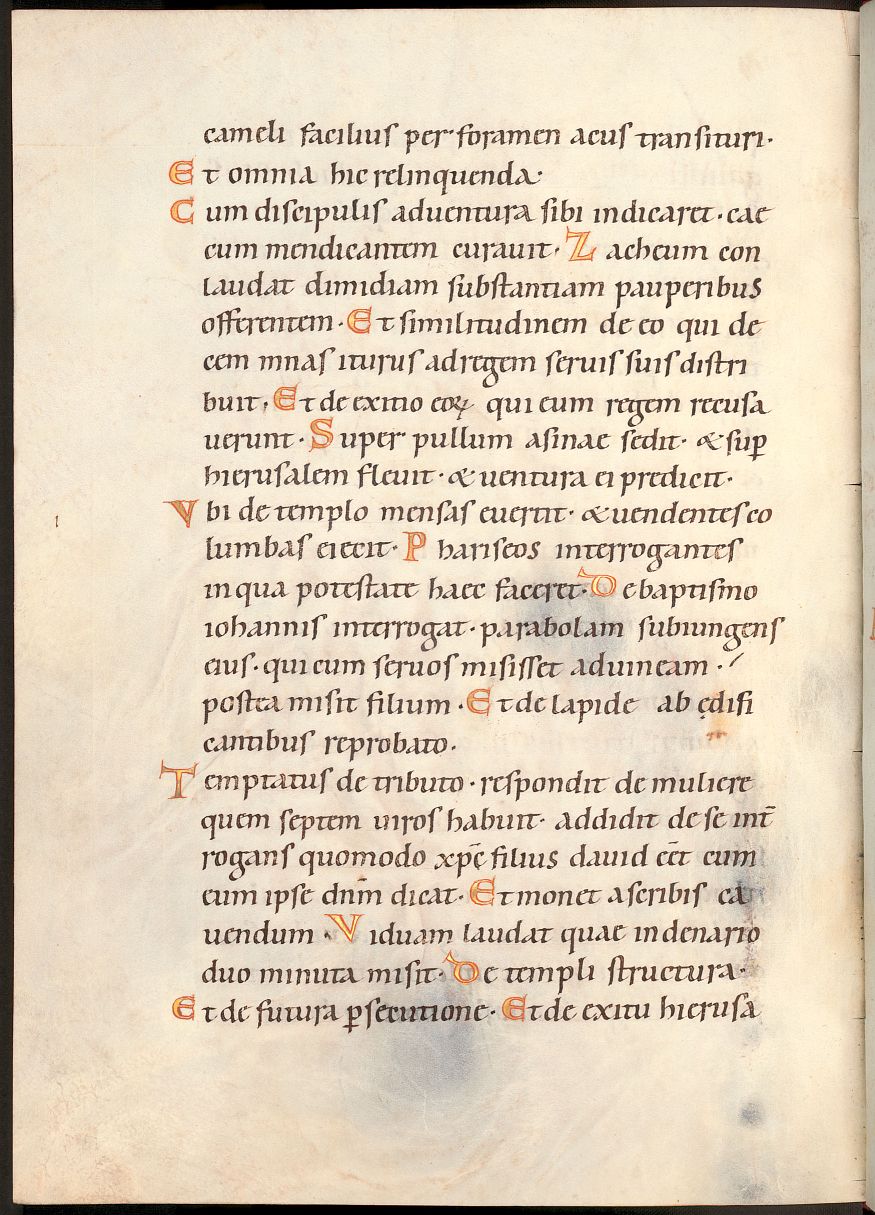 cameli facilius per foramen acus transituri·
Et omnia hic relinquenda·
Cum discipulis aduentura sibi indicaret· cae
cum mendicantem curauit· Zacheum con
laudat dimidiam substantiam pauperibus
offerentem· Et similitudinem de eo qui de
cem mnas iturus ad regem seruis suis distri
buit· Et de exitio eoꝝ qui eum regem recusa
uerunt· Super pullum asinae sedit· & suꝑ
hierusalem fleuit· & uentura ei predicit·
Vbi de templo mensas euertit· & uendentes co
lumbas eiecit· Phariseos interrogantes
in qua potestate haec faceret· De baptismo
iohannis interrogat· parabolam subiungens
eius· qui cum seruos misisset ad uineam·
postea misit filium· Et de lapide ab ędifi
cantibus reprobato·
Temptatus de tributo· respondit de muliere
quem septem uiros habuit· addidit de se int̄
rogans quomodo xp̄e filius dauid eēt cum
eum ipse dn̄m dicat· Et monet a scribis ca
uendum· Viduam laudat quae in denario
duo minuta misit· De templi structura·
Et de futura ꝑsecutione· Et de exitu hierusa